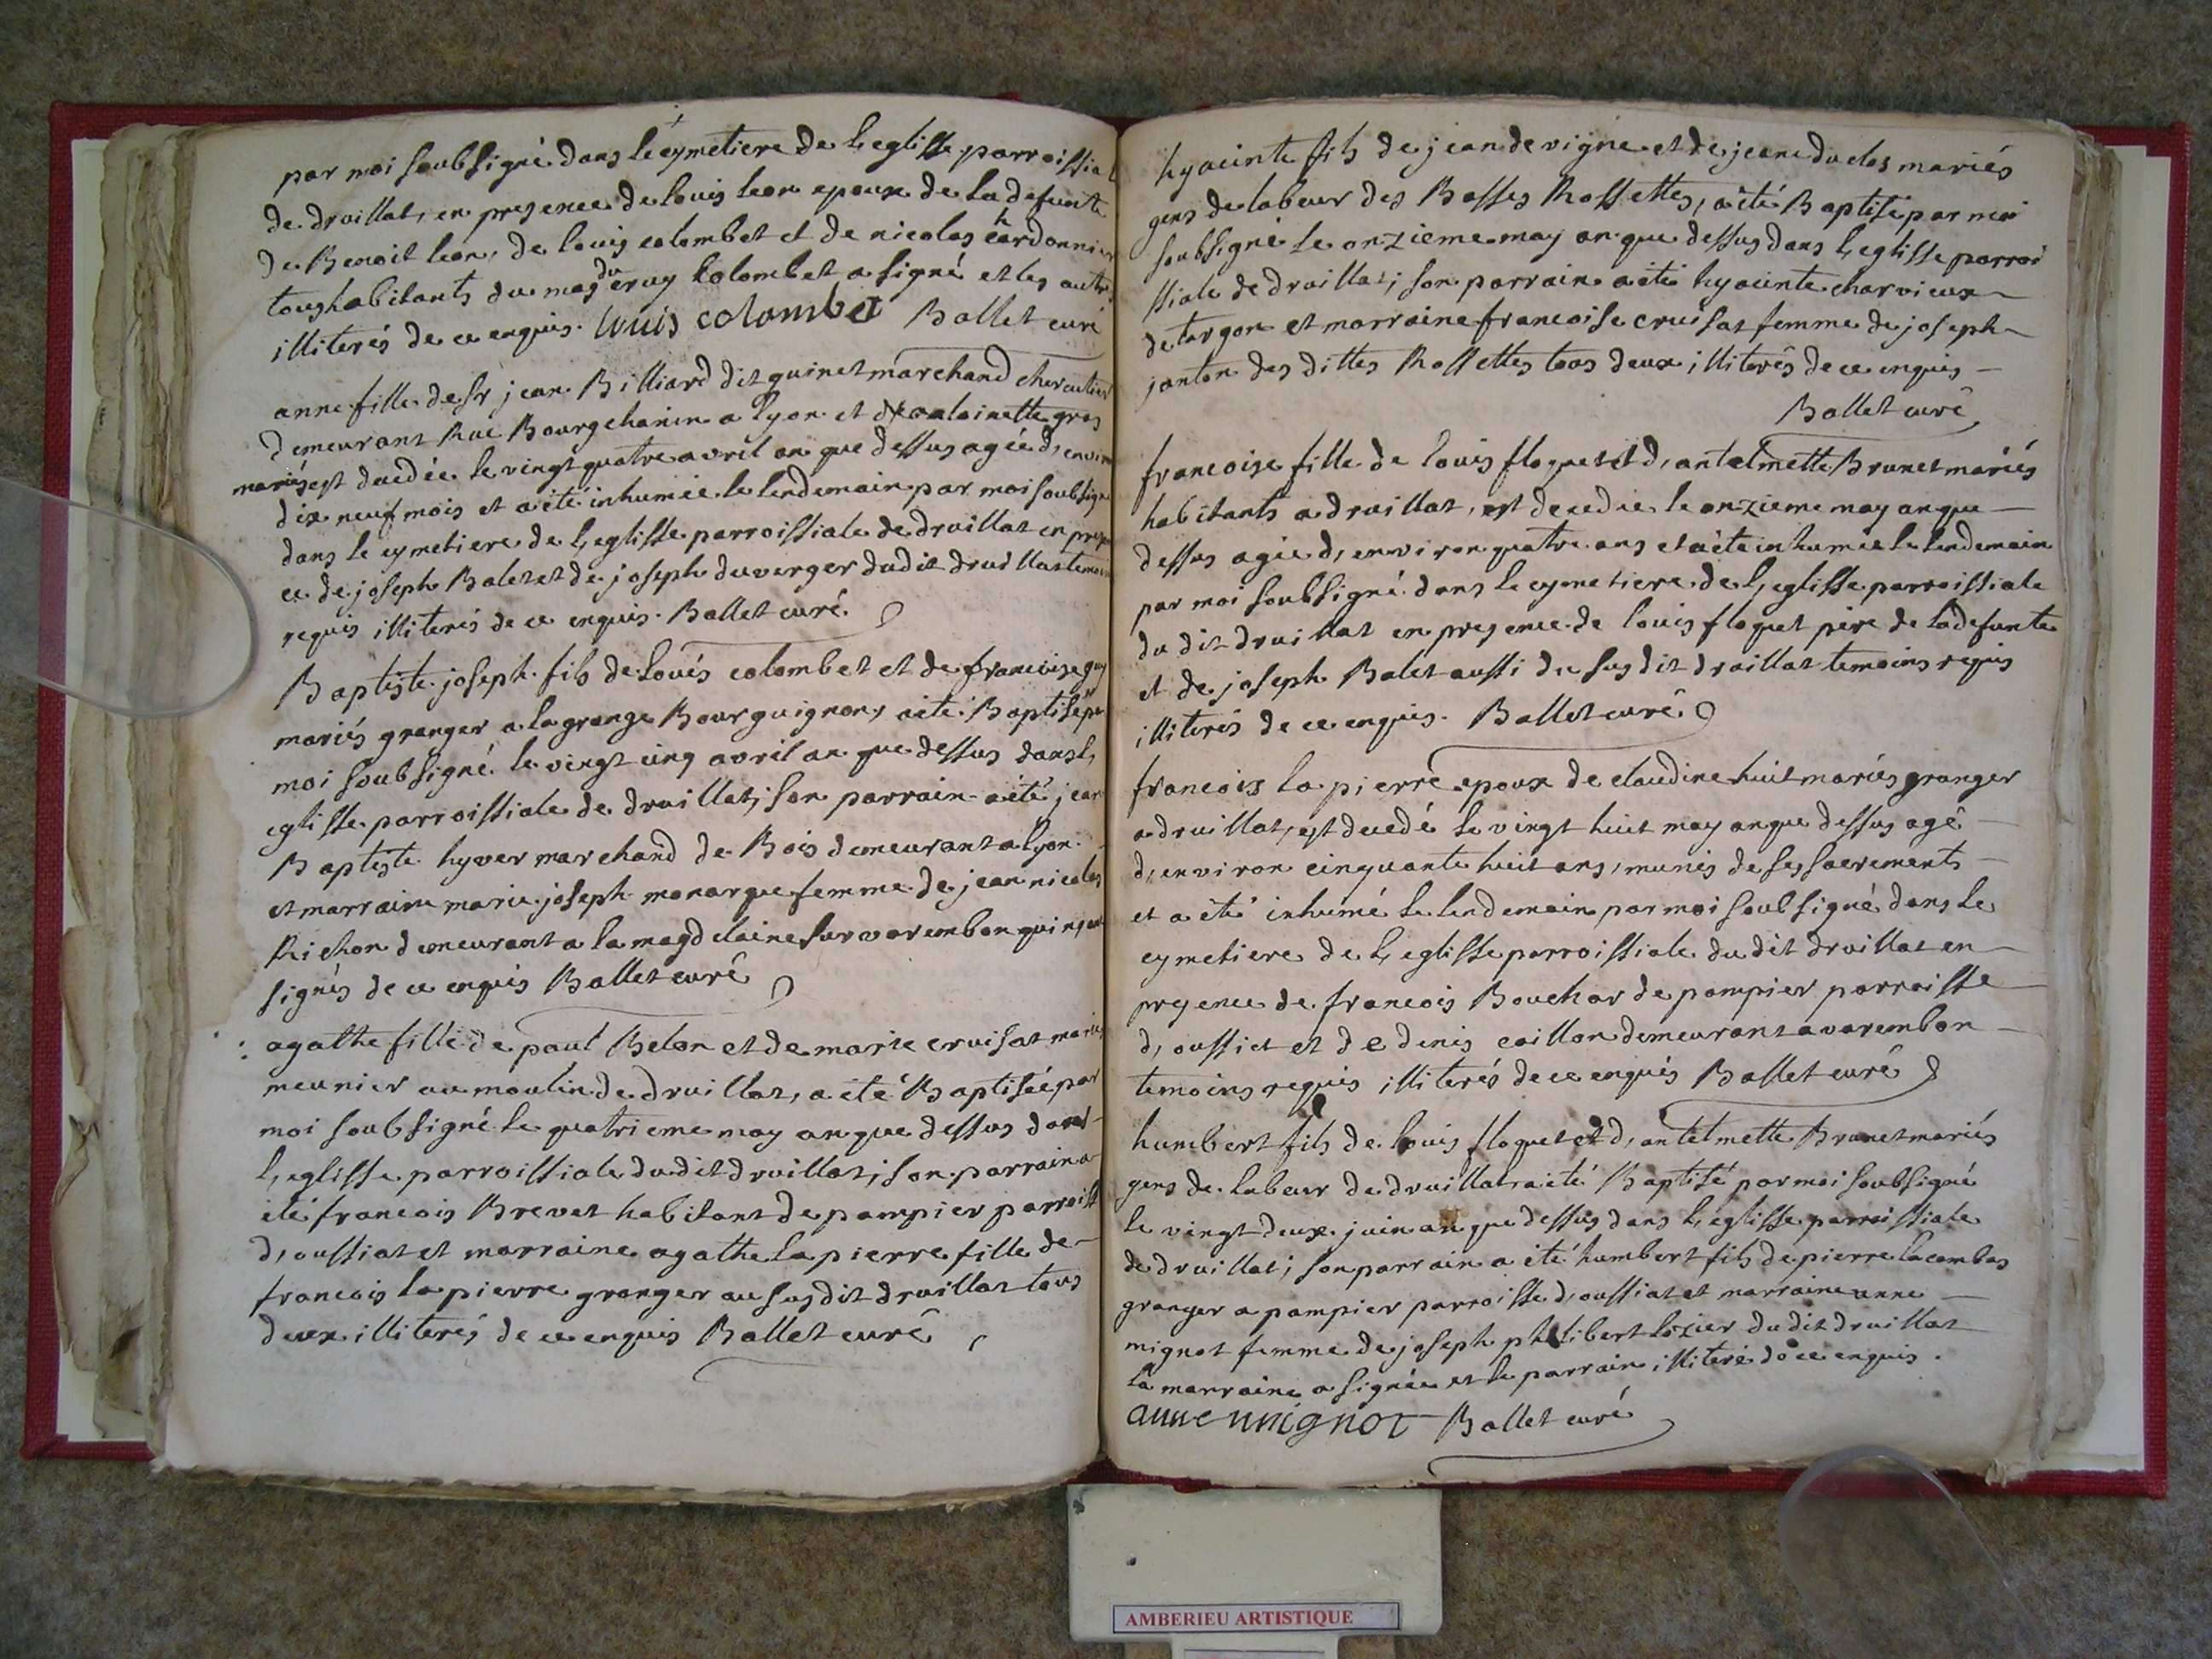 par moi soubsigné dans le cymetiere de l,eglisse parroissial
de druillat, en presence de louis leon epoux de la defunte
de Benoit leon, de louis colombet et de nicolas chardonnier
tous habitants du mas du cruy Colombet a signé et les autres
illiterés de ce enquis. louis colombet Ballet curé
anne fille de sr jean Billiard dit guinet marchand chercutier
demeurant Rue Bourgchanin a lyon et de antoinette gros
mariés est decedée le vingt quatre avril an que dessus agée d,environ
dix neuf mois et a été inhumée le lendemain par moi soubsigné
dans le cymetiere de l,eglisse parroissiale de druillat en presen
ce de joseph Balet et de joseph duverger dudit druillat temoins
requis illiterés de ce enquis. Ballet curé
Baptiste joseph fils de louis colombet et de francoise guy
mariés granger a la grange Bourguignon, a été Baptisé par
moi soubsigné le vingt cinq avril an que dessus dans l,
eglisse parroissiale de druillat; son parrain a été jean
Baptiste hyver marchand de Bois demeurant a lyon
et marraine marie joseph monarque femme de jean nicolas
Richon demeurant a la magdelaine sur varembon qui n,ont
signés de ce enquis Ballet curé
agathe fille de paul Belon et de marie cruisat mariés
meunier au moulin de druillat, a été Baptisée par
moi soubsigné le quatrieme may an que dessus dans
l,eglisse parroissiale du dit druillat; son parrain a
été francois Brevet habitant de pampier parroiss
d,oussiat et marraine agathe lapierre fille de
francois lapierre granger au susdit druillat tous
deux illiterés de ce enquis Ballet curé
hyacinte fils de jean devigne et de jeane duclos mariés
gens de labeur des Basses Rossettes, a été Baptisé par moi
soubsigné le onzieme may an que dessus dans l,eglisse parroi
ssiale de druillat; son parrain a été hyacinte charvieux
de torgon et marraine francoise cruisat femme de joseph
janton des dittes Rossettes tous deux illiterés de ce enquis
Ballet curé
francoise fille de louis floquet et d,antelmette Brunet mariés
habitants a druillat, est decedée le onzieme may an que
dessus agée d,environ quatre ans et a été inhumée le lendemain
par moi soubsigné dans le cymetiere de l,eglisse parroissiale
du dit druillat en presence de louis floquet père de la defunte
et de joseph Balet aussi du susdit druillat temoins requis
illiterés de ce enquis. Ballet curé
francois lapierre epoux de claudine huit mariés granger
a druillat, est decedé le vingt huit may an que dessus agé
d,environ cinquante huit ans, munis de ses sacrements
et a été inhumé le lendemain par moi soubsigné dans le
cymetiere de l,eglisse parroissiale du dit druillat en
presence de francois Bouchar de pampier parroisse
d,oussiat et de denis caillon demeurant a varembon
temoins requis illiterés de ce enquis Ballet curé
humbert fils de louis floquet et d,antelmette Brunet mariés
gens de labeur de druillat a été Baptisé par moi soubsigné
le vingt deux juin an que dessus dans l,eglisse parroissiale
de druillat; son parrain a été humbert fils de pierre lacombas
granger a pampier parroisse d,oussiat et marraine anne
mignot femme de joseph philibert lozier du dit druillat
la marraine a signée et le parrain illiteré de ce enquis.
anne mignot Ballet curé
AMBERIEU ARTISTIQUE